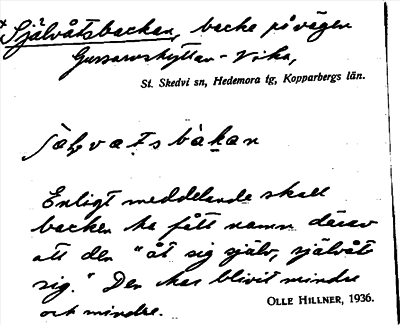 Självåtsbackan, backe på vägen
Gussarvshyttan - Vika,
St. Skedvi sn, Hedemora tg, Kopparbergs län.
Enligt meddelande skall
backen ha fått namn därav
att den "åt sig själv, självåt
sig." Den har blivit mindre
och mindre.
OLLE HILLNER, 1936.